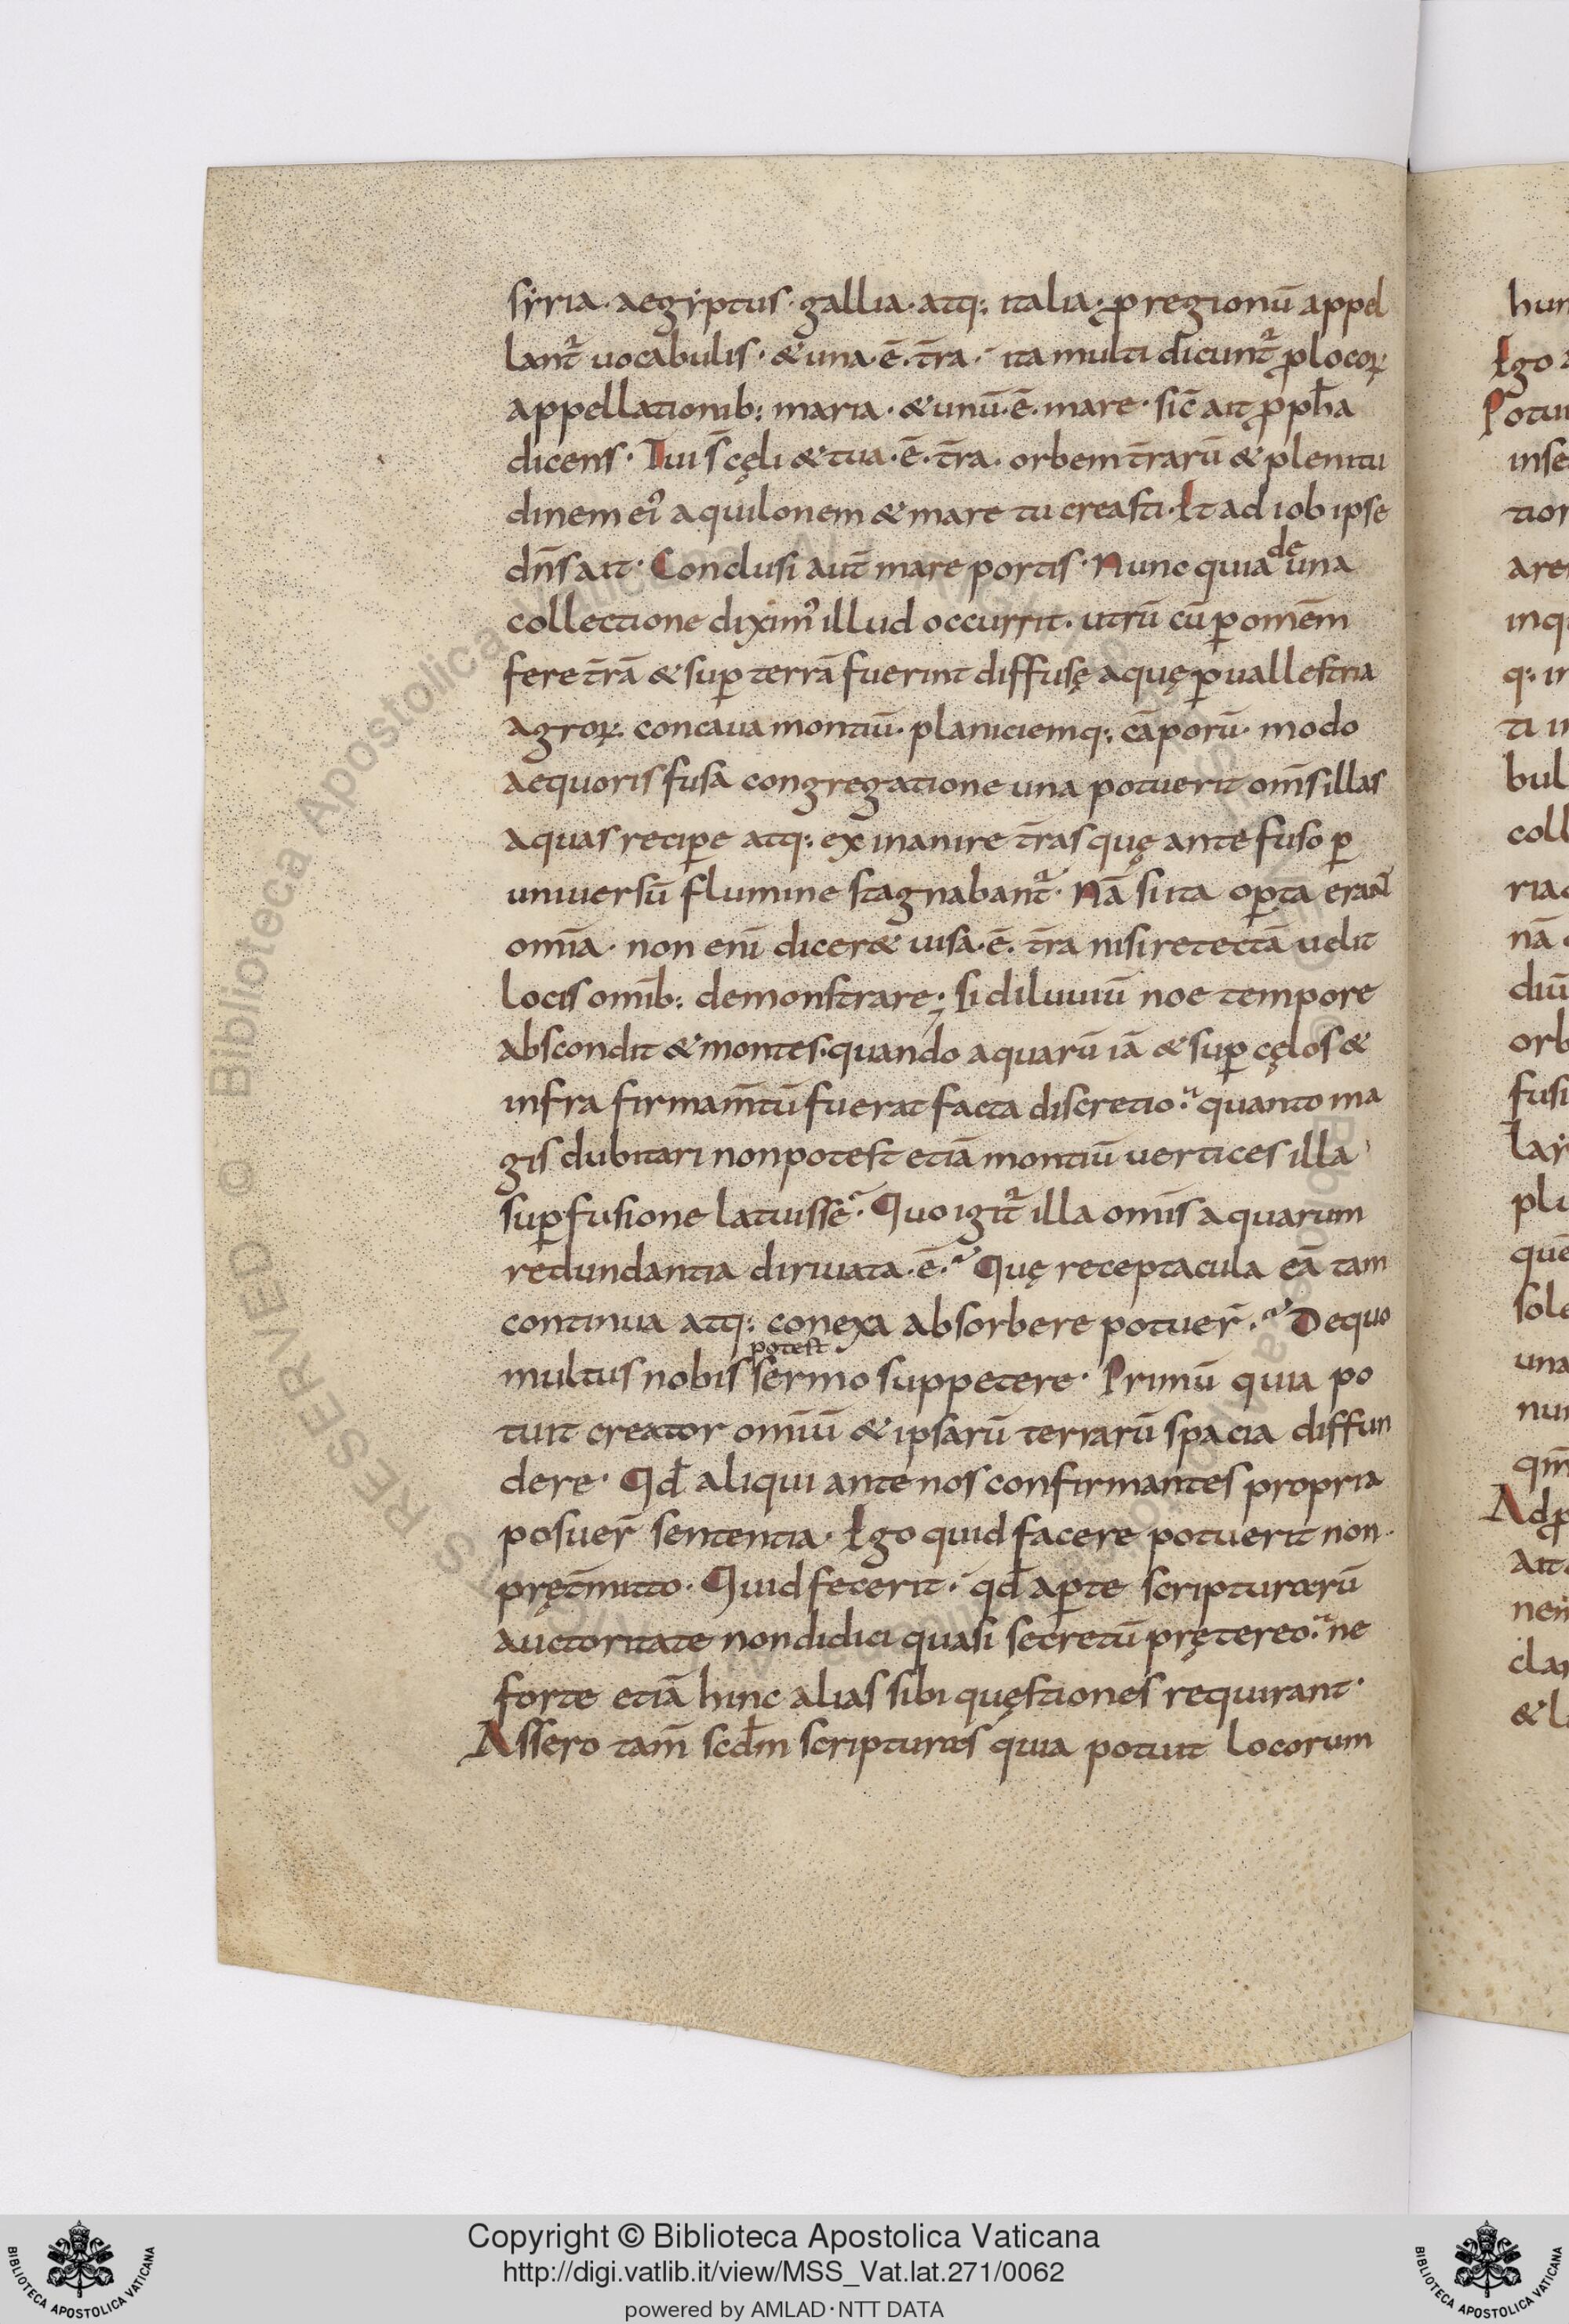 syria· aegyptus· gallia· atq; italia· ꝓ regionū appel
lant̃ uocabulis· & una·ē· t̄ra· ita multi dicunt̃ ꝓ locoꝝ
appellationib; maria· & unū·ē· mare· sic̄ ait ꝓph̄a
dicens· Tui s̄ cęli & tua·ē· t̄ra· orbem t̄rarū & plenitu
dinem ei᾿ aquilonem & mare tu creasti· Et ad iob ipse
dn̄s ait· Conclusi aut̄ mare portis· Nunc quia de una
collectione dixim᾿ illud occurrit· utrū cū ꝑ omēm
fere t̄rā & suꝑ terrā fuerint diffusę aquę ꝑ uallestria
agroꝝ concaua montiū· planiciemq; cāporū· modo
aequoris fusa congregatione una potuerit om̄s illas
aquas reciꝑe atq; exinanire t̄ras quę ante fuso ꝑ
uniuersū flumine stagnabant̃· Nā si ita oꝑta erant
om̄ia· non enī dicer& uisa·ē· t̄ra nisi retectā uelit
locis om̄ib; demonstrare; si diluuiū noe tempore
abscondit & montes· quando aquarū iā & suꝑ cęlos &
infra firmam̄tū fuerat facta discretio· quanto ma
gis dubitari non potest etiā montiū uertices illa
suꝑfusione latuisse· Quo igit̃ illa om̄is aquarum
redundantia diriuata·ē· Quę receptacula eā tam
continua atq; conexa absorbere potuer̄· De quo
multus nobis potest sermo suppetere· Primū quia po
tuit creator om̄iū & ipsarū terrarū spacia diffun
dere· Qd̄ aliqui ante nos confirmantes propria
posuer̄ sententia· Ego quid facere potuerit non
pręt̄mitto· Quid fecerit· qd̄ aꝑte scripturarū
auctoritate non didici quasi secretū prętereo· ne
forte etiā hinc alias sibi quęstiones requirant·
Assero tam̄ scd̄m scripturas quia potuit locorum
hun
Ego
Potui
inse
tion
are
inq
q; in
ti in
bul
coll
ria
nā
diū
orb
fusi
lay
plu
quē
sole
una
nun
qm̄
Adꝓ
ait
nem
cla
& l
Copyright © Biblioteca Apostolica Vaticana
http://digi.vatlib.it/view/MSS_Vat.lat.271/0062
powered by AMLAD·NTT DATA
BIBLIOTECA APOSTOLICA VATICANA
BIBLIOTECA APOSTOLICA VATICANA